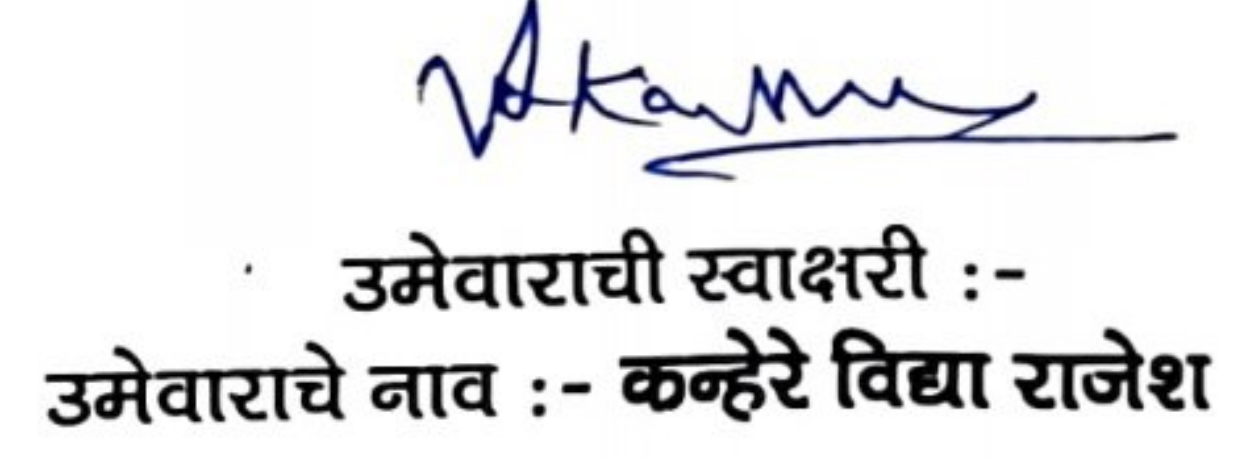 उमेवाराची स्वाक्षरी :-
उमेवाराचे नाव :- कन्हेरे विद्या राजेश